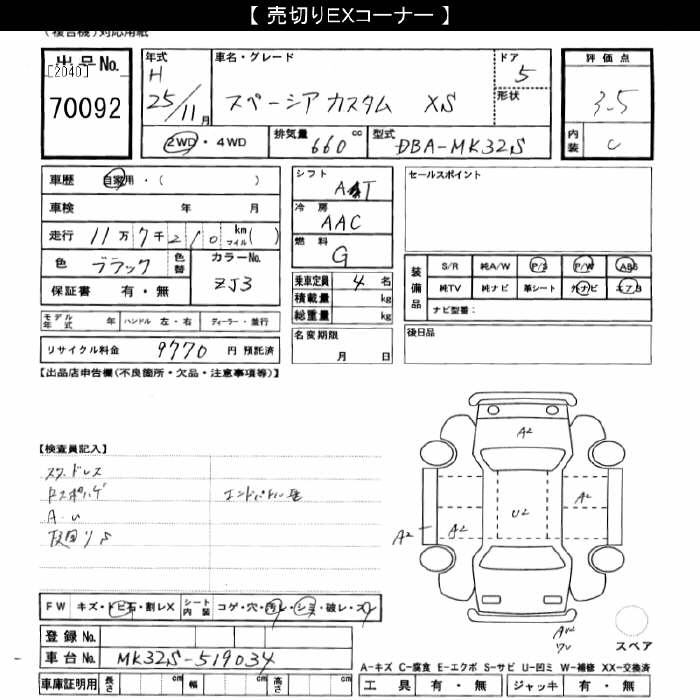 【 売切りEXコーナー 】
(複合機)対応用紙
出品No.
[2040]
70092
年式
H
25/11月
車名・グレード
スペーシア カスタム XS
ドア
5
形状
2WD・4WD
排気量 660 cc
型式 DBA-MK32S
評価点
3.5
内装 C
車歴 自家用・( )
車検 年 月
走行 11万7千210 km マイル( )
色 ブラック 色替
カラーNo.
ZJ3
保証書 有・無
モデル年式 年 ハンドル 左・右 ディーラー・並行
リサイクル料金 9770 円 預託済
シフト
AT
冷房
AAC
燃料
G
乗車定員 4 名
積載量 kg
総重量 kg
名変期限
月 日
セールスポイント
装備品
S/R 純A/W P/S P/W ABS
純TV 純ナビ 革シート 外ナビ エアB
ナビ型番:
後日品
【出品店申告欄(不良箇所・欠品・注意事項等)】
【検査員記入】
A・U
A2
A2
U2
A2
A2
FW キズ・トビ石・割レX シート内装 コゲ・穴・汚レ・シミ・破レ・スレ
登録No.
車台No. MK32S-519034
車庫証明用 長さ cm 幅 cm 高さ cm
スペア
A-キズ C-腐食 E-エクボ S-サビ U-凹ミ W-補修 XX-交換済
工具 有・無 ジャッキ 有・無